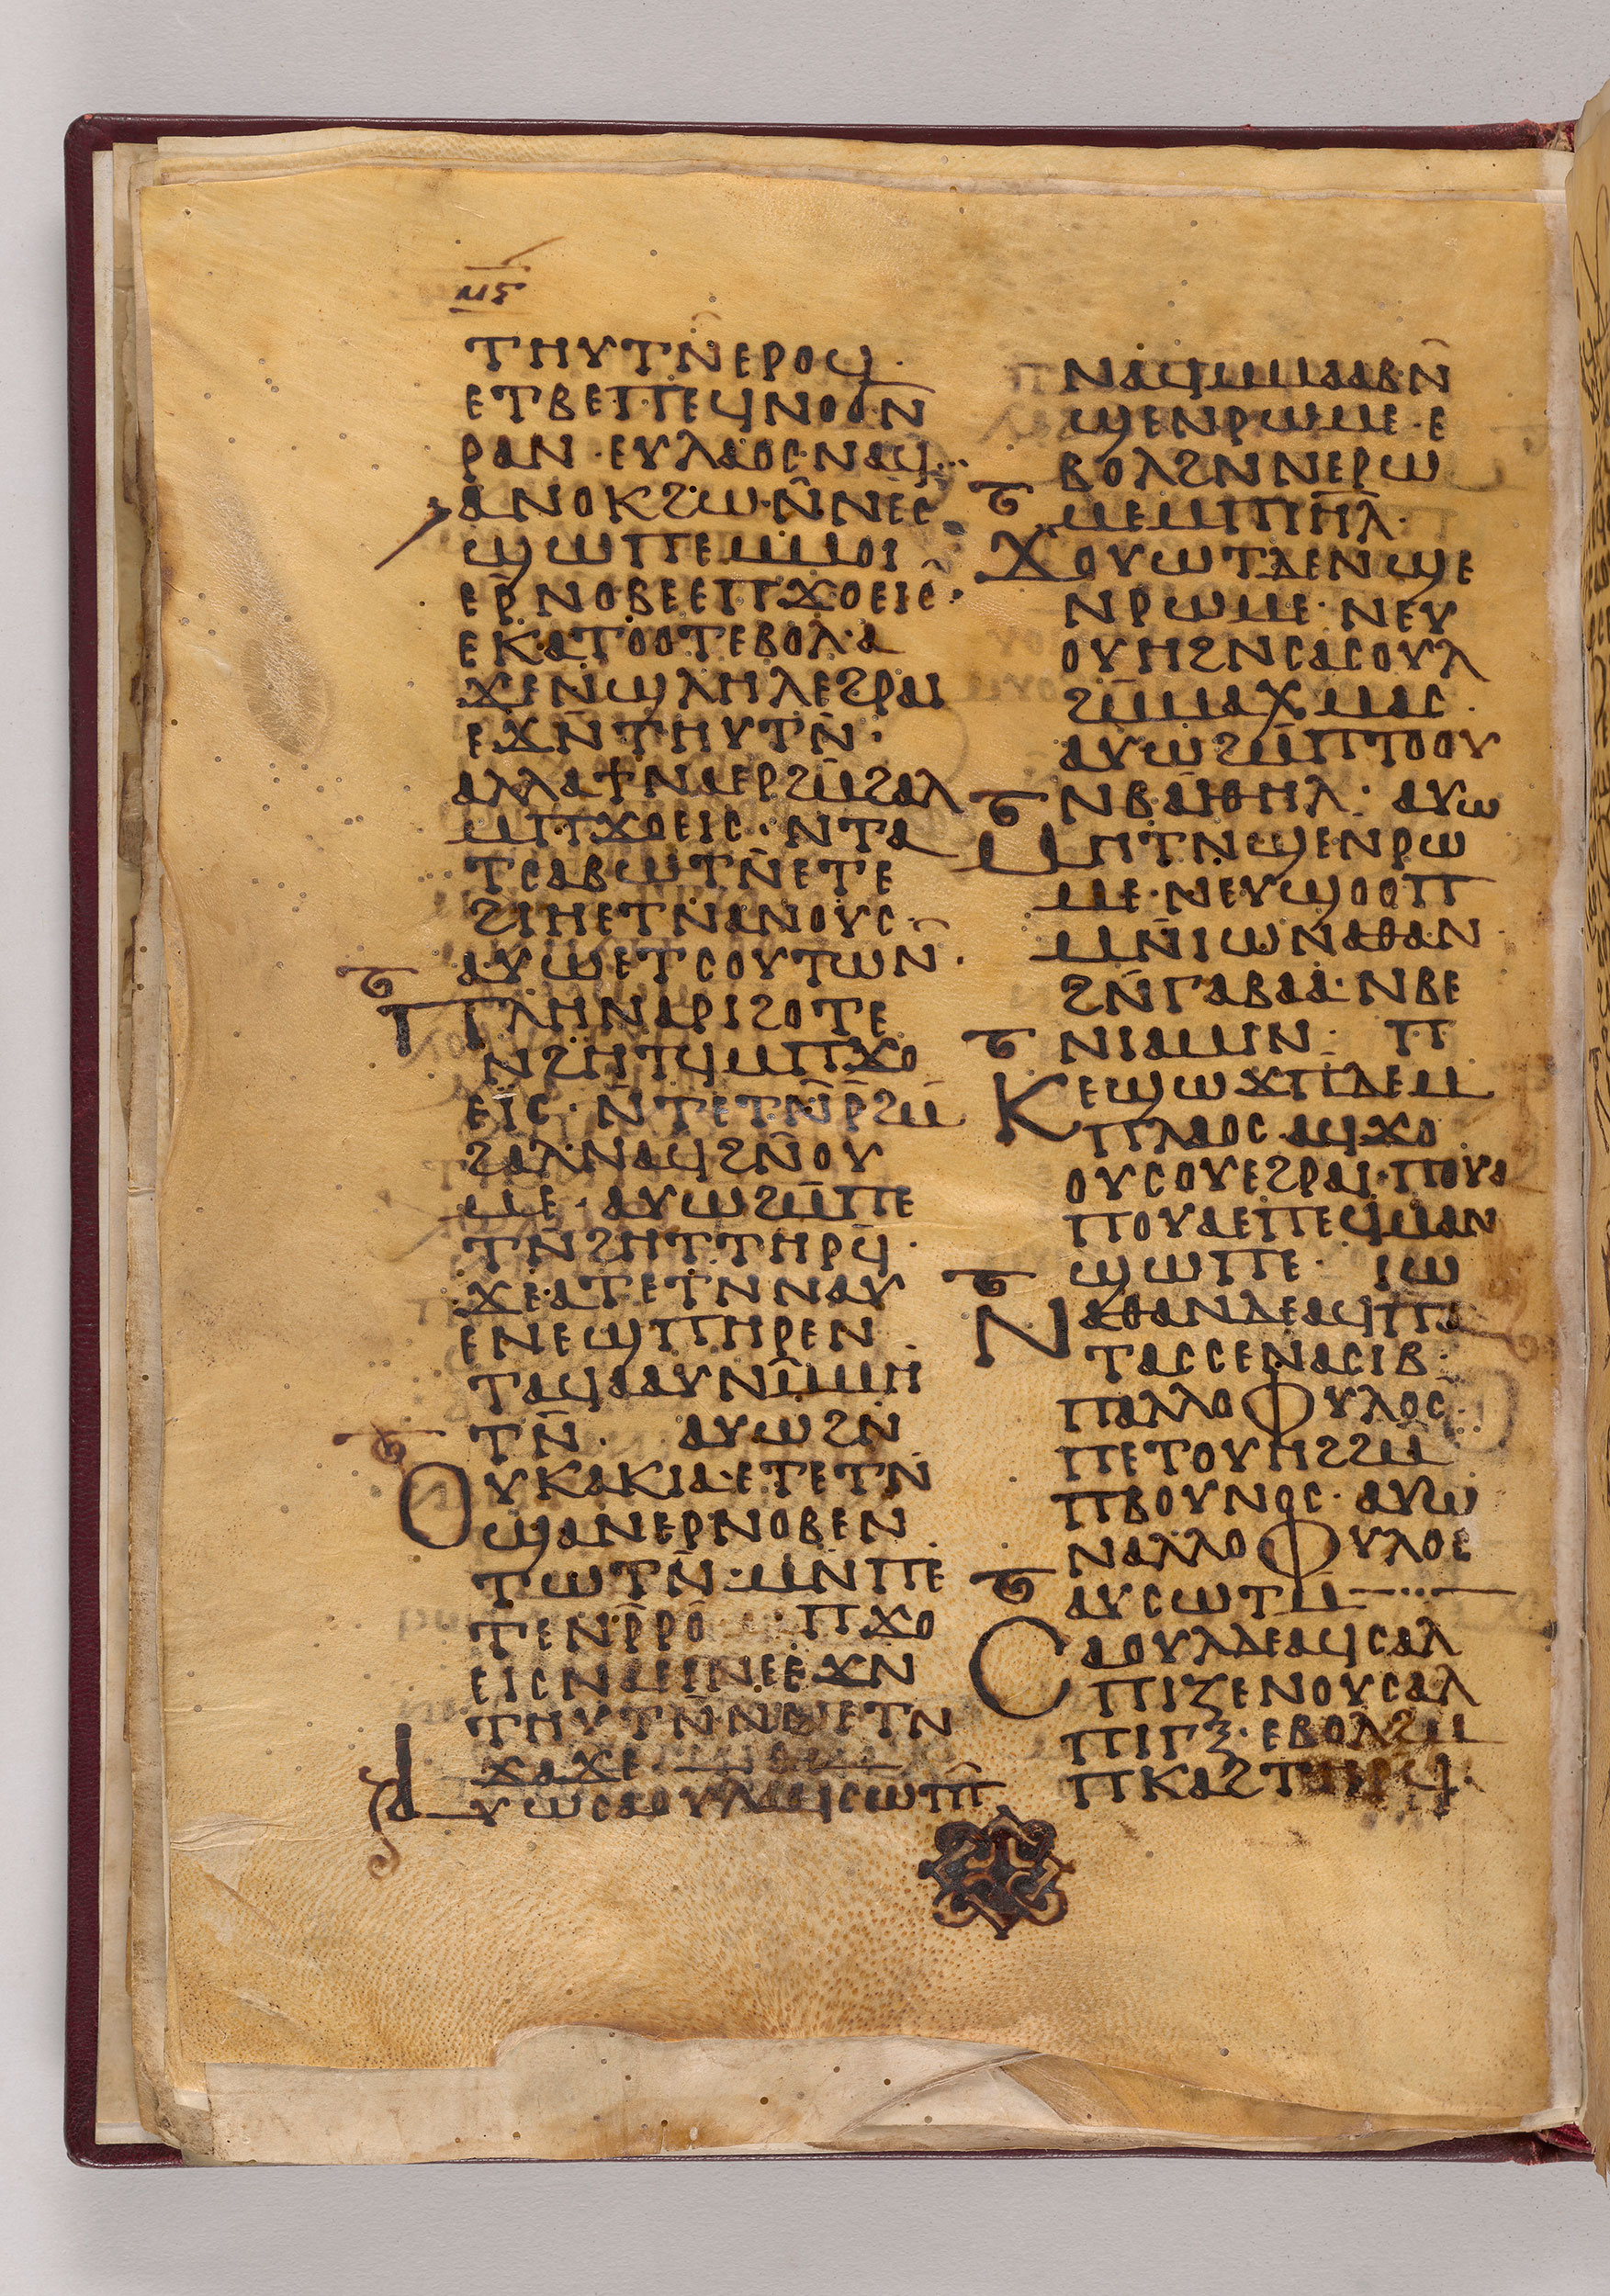 ⲙⲋ
ⲧⲏⲩⲧⲛ̄ⲉⲣⲟϥ·
ⲉⲧⲃⲉⲡⲉϥⲛⲟϭⲛ̄
ⲣⲁⲛ·ⲉⲩⲗⲁⲟⲥ·ⲛⲁϥ·
ⲁⲛⲟⲕϩⲱ·ⲛ̄ⲛⲉⲥ
ϣⲱⲡⲉⲙⲙⲟⲓ
ⲉⲣ̄ⲛⲟⲃⲉⲉⲡϫⲟⲉⲓⲥ·
ⲉⲕⲁⲧⲟⲟⲧⲉⲃⲟⲗ·ⲁ
ϫⲉⲛϣⲗⲏⲗⲉϩⲣⲁⲓ
ⲉϫⲛ̄ⲧⲏⲩⲧⲛ̄·
ⲁⲗⲗⲁϯⲛⲁⲉⲣϩⲙ̄ϩⲁⲗ
ⲙⲡϫⲟⲉⲓⲥ·ⲛⲧⲁ
ⲧⲥⲁⲃⲱⲧⲛ̄ⲉⲧⲉ
ϩⲓⲏⲉⲧⲛⲁⲛⲟⲩⲥ·
ⲁⲩⲱⲉⲧⲥⲟⲩⲧⲱⲛ̄·
ⲡⲗⲏⲛⲁⲣⲓϩⲟⲧⲉ
ⲛϩⲏⲧϥⲙⲡϫⲟ
ⲉⲓⲥ·ⲛ̄ⲧⲉⲧⲛ̄ⲣ̄ϩⲙ̄
ϩⲁⲗ·ⲛⲁϥϩⲛ̄ⲟⲩ
ⲙⲉ·ⲁⲩⲱϩⲙ̄ⲡⲉ
ⲧⲛ̄ϩⲏⲧⲧⲏⲣϥ̄·
ϫⲉ·ⲁⲧⲉⲧⲛⲛⲁⲩ
ⲉⲛⲉϣⲡⲏⲣⲉⲛ
ⲧⲁϥⲁⲁⲩⲛⲙ̄ⲙⲏ
ⲧⲛ̄· ⲁⲩⲱϩⲛ
ⲟⲩⲕⲁⲕⲓⲁ·ⲉⲧⲉⲧⲛ
ϣⲁⲛⲉⲣⲛⲟⲃⲉⲛ
ⲧⲱⲧⲛ̄·ⲙⲛ̄ⲡⲉ
ⲧⲉⲛⲣ̄ⲣⲟ̄ ⲡϫⲟ
ⲉⲓⲥⲛⲁⲉⲓⲛⲉⲉϫⲛ
ⲧⲏⲩⲧⲛ̄ⲛ
ϫⲁϫⲉ
ⲁⲩⲱⲥⲁⲟⲩⲗⲁϥⲥⲱⲧⲡ̄
ⲛⲁϥⲙⲙⲁⲁⲃ·ⲛ̄
ϣⲉⲛⲣⲱⲙⲉ·ⲉ
ⲃⲟⲗϩⲛⲛⲉⲣⲱ
ⲙⲉⲙⲡⲓⲏ̄ⲗ̄·
ϫⲟⲩⲱⲧⲇⲉⲛϣⲉ
ⲛⲣⲱⲙⲉ·ⲛⲉⲩ
ⲟⲩⲏϩⲛⲥⲁⲥⲟⲩⲗ
ϩⲙ̄ⲙⲁⲭⲙⲁⲥ·
ⲁⲩⲱϩⲙ̄ⲡⲧⲟⲟⲩ
ⲛⲃⲁⲓⲑⲏⲗ· ⲁⲩⲱ
ⲙⲏⲧⲛϣⲉⲛⲣⲱ
ⲙⲉ·ⲛⲉⲩϣⲟⲟⲡ
ⲙⲛ̄ⲓⲱⲛⲁⲑⲁⲛ·
ϩⲛ̄ⲅⲁⲃⲁⲁ·ⲛⲃⲉ
ⲛⲓⲁⲙⲓⲛ· ⲡ
ⲕⲉϣⲱϫⲡⲇⲉⲙ
ⲡⲗⲁⲟⲥ·ⲁϥϫⲟ
ⲟⲩⲥⲟⲩⲉϩⲣⲁⲓ·ⲡⲟⲩⲁ
ⲡⲟⲩⲁⲉⲡⲉϥⲙⲁⲛ
ϣⲱⲡⲉ· ⲓⲱ
ⲛⲁⲑⲁⲛⲇⲉⲁϥⲡⲁ
ⲧⲁⲥⲥⲉⲛⲁⲥⲓⲃ·
ⲡⲁⲗⲗⲟⲫⲩⲗⲟⲥ·
ⲡⲉⲧⲟⲩⲏϩϩⲙ
ⲡⲃⲟⲩⲛⲟⲥ·ⲁⲩⲱ
ⲛⲁⲗⲗⲟⲫⲩⲗⲟⲥ
ⲁⲩⲥⲱⲧⲙ
ⲥⲁⲟⲩⲗⲇⲉⲁϥⲥⲁⲗ
ⲡⲓⲍⲉⲛⲟⲩⲥⲁⲗ
ⲡⲓⲅⲝ·ⲉⲃⲟⲗϩⲙ
ⲡⲕⲁϩⲧⲏⲣϥ·